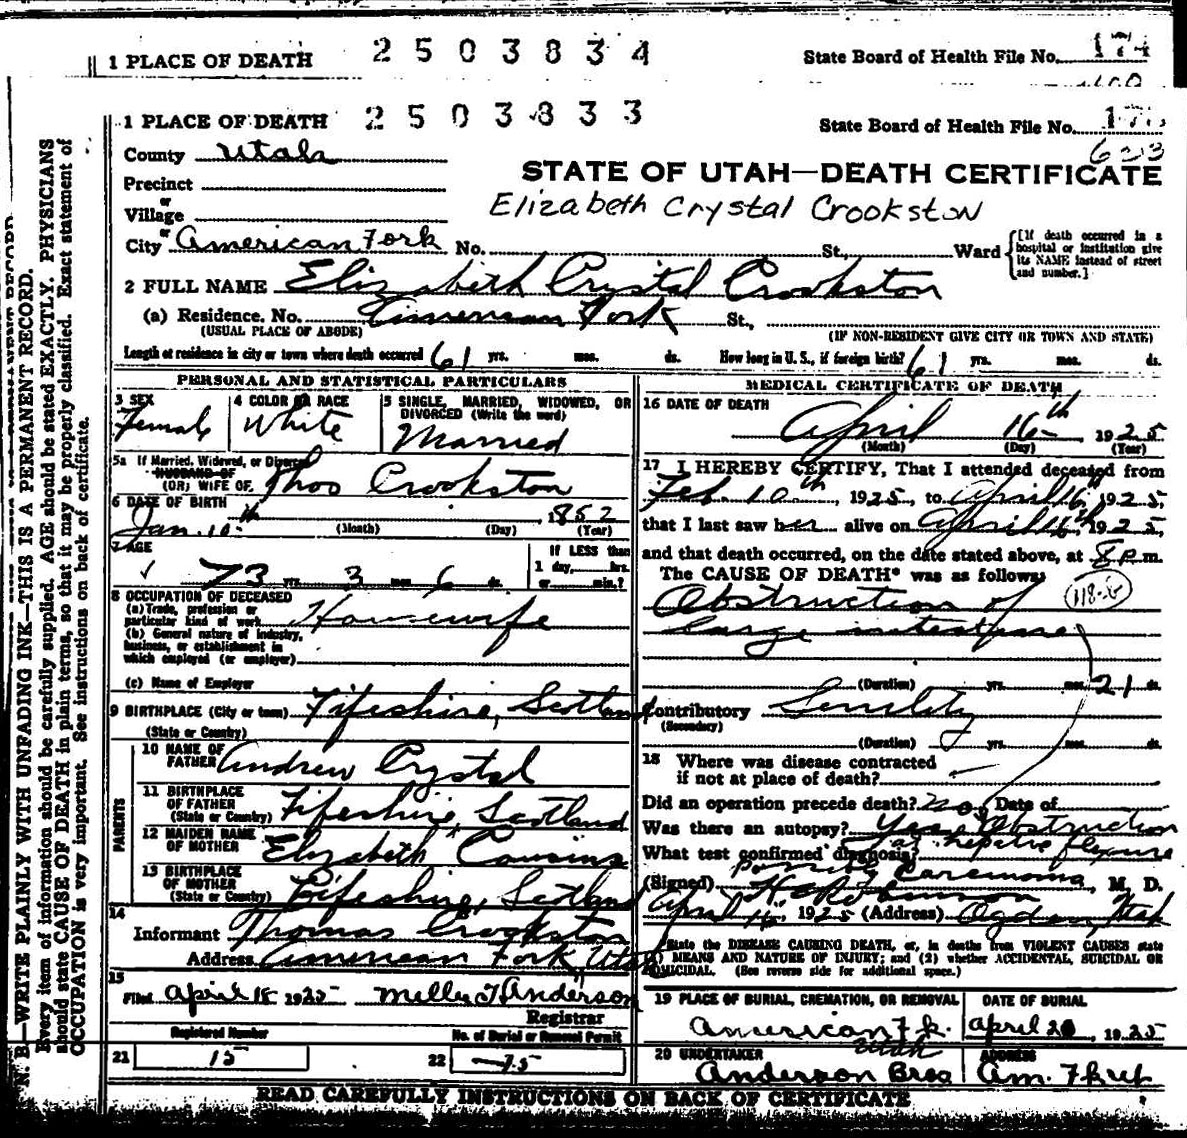 1 PLACE OF DEATH 2503834 State Board of Health File No. 174
1 PLACE OF DEATH 2503833 State Board of Health File No.
623
County Utah
STATE OF UTAH—DEATH CERTIFICATE
Precinct
or
Village
Elizabeth Crystal Crookston
or
City American Fork No. St., Ward
[If death occurred in a hospital or institution give its NAME instead of street and number.]
2 FULL NAME Elizabeth Crystal Crookston
(a) Residence. No. American Fork St.,
(USUAL PLACE OF ABODE) (IF NON-RESIDENT GIVE CITY OR TOWN AND STATE)
Length of residence in city or town where death occurred 61 yrs. mos. ds. How long in U. S., if foreign birth? 61 yrs. mos. ds.
PERSONAL AND STATISTICAL PARTICULARS
3 SEX 4 COLOR OR RACE 5 SINGLE, MARRIED, WIDOWED, OR
DIVORCED (Write the word)
Female White Married
5a If Married, Widowed, or Divorced
HUSBAND OF
(OR) WIFE OF Thos Crookston
6 DATE OF BIRTH
Jan. 10th 1852
(Month) (Day) (Year)
7 AGE If LESS than
1 day, hrs.
73 yrs. 3 mos. 6 ds. or min.?
8 OCCUPATION OF DECEASED
(a) Trade, profession or
particular kind of work Housewife
(b) General nature of industry,
business, or establishment in
which employed (or employer)
(c) Name of Employer
9 BIRTHPLACE (City or town) Fifeshire, Scotland
(State or Country)
PARENTS
10 NAME OF
FATHER Andrew Crystal
11 BIRTHPLACE
OF FATHER
(State or Country) Fifeshire Scotland
12 MAIDEN NAME
OF MOTHER Elizabeth Cousins
13 BIRTHPLACE
OF MOTHER
(State or Country) Fifeshire, Scotland
14
Informant Thomas Crookston
Address American Fork Utah
15
Filed April 18 1925 Registrar
Registered Number No. of Burial or Removal Permit
21 15 22 75
MEDICAL CERTIFICATE OF DEATH
16 DATE OF DEATH
April 16th 1925
(Month) (Day) (Year)
17 I HEREBY CERTIFY, That I attended deceased from
Feb. 10th, 1925, to April 16, 1925,
that I last saw her alive on April 16th, 1925,
and that death occurred, on the date stated above, at 8 P.m.
The CAUSE OF DEATH* was as follows:
Obstruction of
large intestine
(Duration) yrs. mos. 21 ds.
Contributory Senility
(Secondary)
(Duration) yrs. mos. ds.
18 Where was disease contracted
if not at place of death?
Did an operation precede death? no Date of
Was there an autopsy? Yes Obstruction
What test confirmed diagnosis? hepatic flexure
possibly Carcinoma
(Signed) , M. D.
April 16, 1925 (Address) Ogden, Utah
*State the DISEASE CAUSING DEATH, or, in deaths from VIOLENT CAUSES state
(1) MEANS AND NATURE OF INJURY; and (2) whether ACCIDENTAL, SUICIDAL OR
HOMICIDAL. (See reverse side for additional space.)
19 PLACE OF BURIAL, CREMATION, OR REMOVAL DATE OF BURIAL
American Fk. Utah April 20, 1925
20 UNDERTAKER ADDRESS
Anderson Bros Am. Fork
READ CAREFULLY INSTRUCTIONS ON BACK OF CERTIFICATE
N. B.—WRITE PLAINLY WITH UNFADING INK—THIS IS A PERMANENT RECORD.
Every item of information should be carefully supplied. AGE should be stated EXACTLY. PHYSICIANS
should state CAUSE OF DEATH in plain terms, so that it may be properly classified. Exact statement of
OCCUPATION is very important. See instructions on back of certificate.